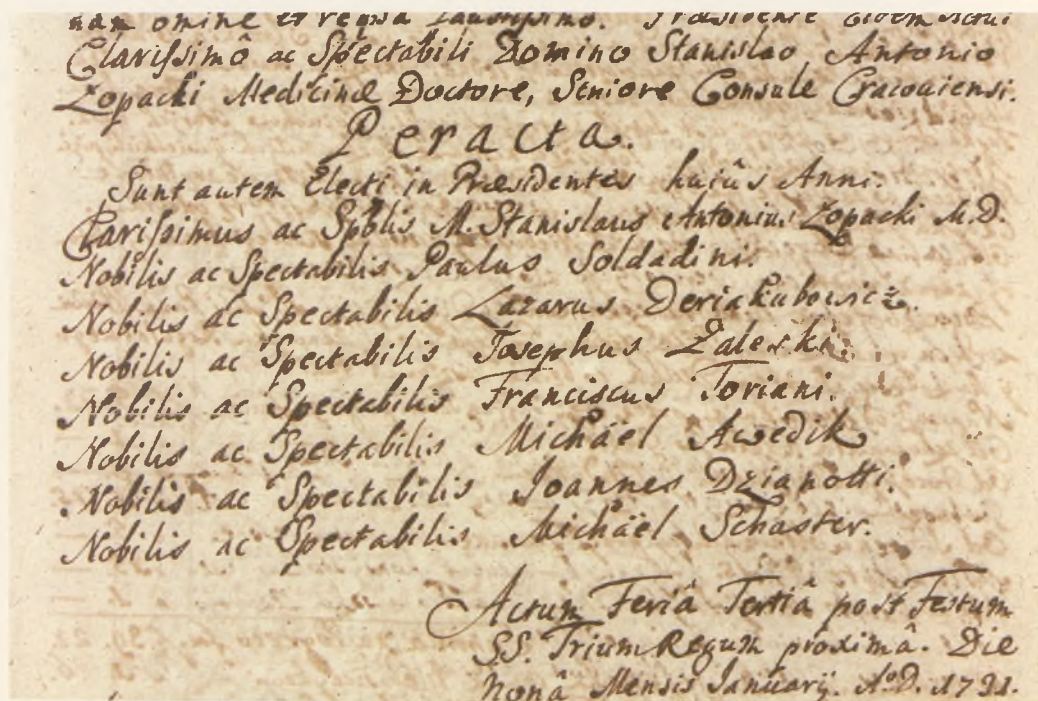 nam omine et regna faustissimo. Præsidente eidem actui
Clarissimô ac Spectabili Domino Stanislao Antonio
Łopacki Medicinæ Doctore, Seniore Consule Cracoviensi.
Peracta.
Sunt autem Electi in Præsidentes huiûs Anni.
Clarissimus ac Spblis M. Stanislaus Antonius Łopacki M.D.
Nobilis ac Spectabilis Paulus Soldadini.
Nobilis ac Spectabilis Lazarus Deriakubowicz.
Nobilis ac Spectabilis Josephus Zaleski.
Nobilis ac Spectabilis Franciscus Toriani.
Nobilis ac Spectabilis Michäel Awedik
Nobilis ac Spectabilis Joannes Dzianotti.
Nobilis ac Spectabilis Michäel Schaster.
Actum Feriâ Tertiâ post Festum
S.S. Trium Regum proximâ. Die
nonâ Mensis Januarij. Aº.D. 1731.